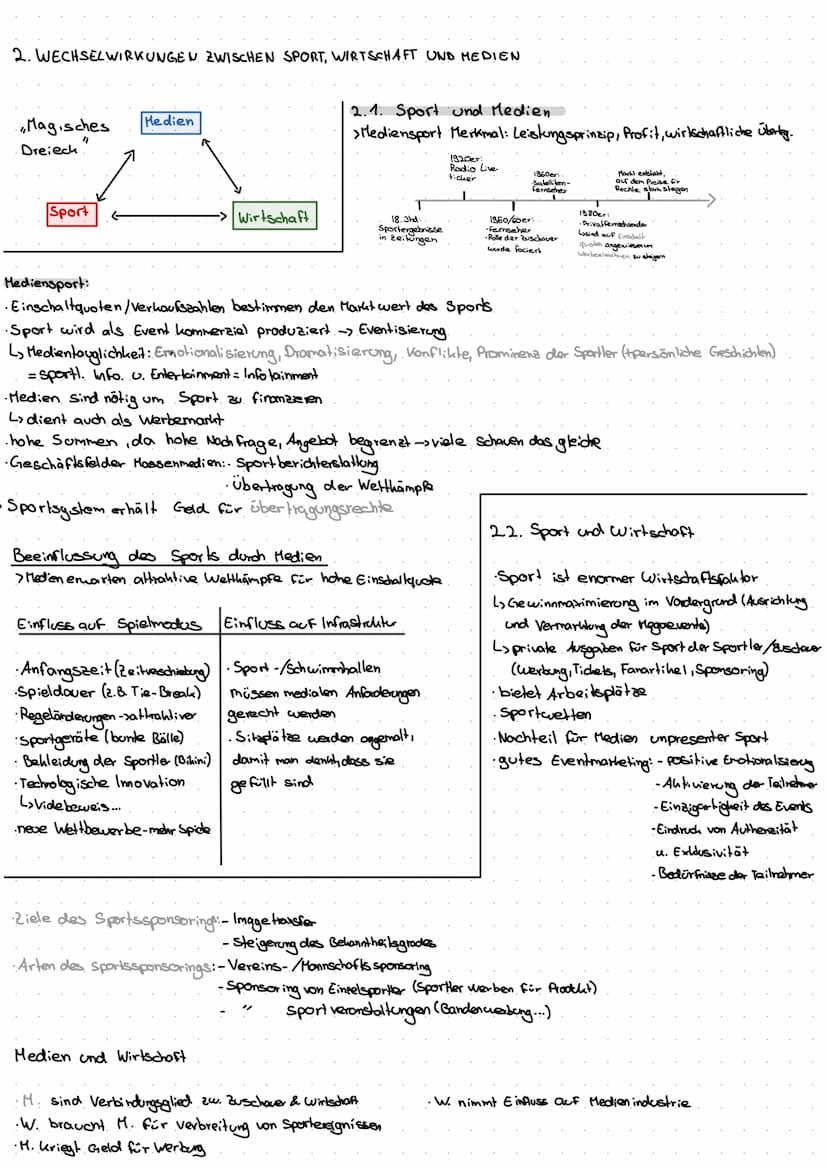 2. WECHSELWIRKUNGEN ZWISCHEN SPORT, WIRTSCHAFT UND MEDIEN
„Magisches
Dreieck"
Medien
Sport
Wirtschaft
2.1. Sport und Medien
>Mediensport Merkmal: Leistungsprinzip, Profit, wirtschaftliche Übertg.
1920er:
Radio Live-
ticker
1960er:
Satelliten-
fernseher
Markt explodiert,
auf dem Preise für
Rechte stark stiegen
18. Jhd:
Sportergebnisse
in Zeitungen
1950/60er:
-Fernseher
-Rolle der Zuschauer
wurde forciert
1980er:
-Privatfernsehsender
↳sind auf Einschalt
quoten angewiesen um
Werbeeinnahmen zu steigern
Mediensport:
·Einschaltquoten/Verkaufszahlen bestimmen den Marktwert des Sports
·Sport wird als Event kommerzial produziert → Eventisierung
↳ Medientauglichkeit: Emotionalisierung, Dramatisierung, Konflikte, Prominenz der Sportler (+persönliche Geschichten)
= sportl. Info. u. Entertainment = Infotainment
·Medien sind nötig um Sport zu finanzieren
↳ dient auch als Werbemarkt
·hohe Summen, da hohe Nachfrage, Angebot begrenzt → viele schauen das gleiche
·Geschäftsfelder Massenmedien:· Sportberichterstattung
· Übertragung der Wettkämpfe
· Sportsystem erhält Geld für Übertragungsrechte
Beeinflussung des Sports durch Medien
> Medien erwarten attraktive Wettkämpfe für hohe Einschaltquote
Einfluss auf Spielmodus
·Anfangszeit (Zeitverschiebung)
·Spieldauer (z.B. Tie-Break)
·Regeländerungen → attraktiver
·Sportgeräte (bunte Bälle)
· Bekleidung der Sportler (Bikini)
·Technologische Innovation
↳Videobeweis...
·neue Wettbewerbe-mehr Spiele
Einfluss auf Infrastruktur
· Sport-/Schwimmhallen
müssen medialen Anforderungen
gerecht werden
· Sitzplätze werden angemalt,
damit man denkt, dass sie
gefüllt sind
2.2. Sport und Wirtschaft
·Sport ist enormer Wirtschaftsfaktor
↳ Gewinnmaximierung im Vordergrund (Ausrichtung
und Vermarktung der Megaevents)
↳ private Ausgaben für Sport der Sportler/Zuschauer
(Werbung, Tickets, Fanartikel, Sponsoring)
· bietet Arbeitsplätze
· Sportwetten
·Nachteil für Medien unpresenter Sport
·gutes Eventmarketing: - Positive Emotionalisierung
-Aktivierung der Teilnehmer
-Einzigartigkeit des Events
-Eindruck von Authenzität
u. Exklusivität
- Bedürfnisse der Teilnehmer
·Ziele des Sportssponsoring: - Imagetransfer
- Steigerung des Bekanntheitsgrades
·Arten des Sportssponsorings: - Vereins-/Mannschaftssponsoring
- Sponsoring von Einzelsportler (Sportler werben für Produkt)
- " Sportveranstaltungen (Bandenwerbung...)
Medien und Wirtschaft
·M. sind Verbindungsglied zw. Zuschauer & Wirtschaft
·W. braucht M. für Verbreitung von Sportereignissen
·M. kriegt Geld für Werbung
·W. nimmt Einfluss auf Medienindustrie